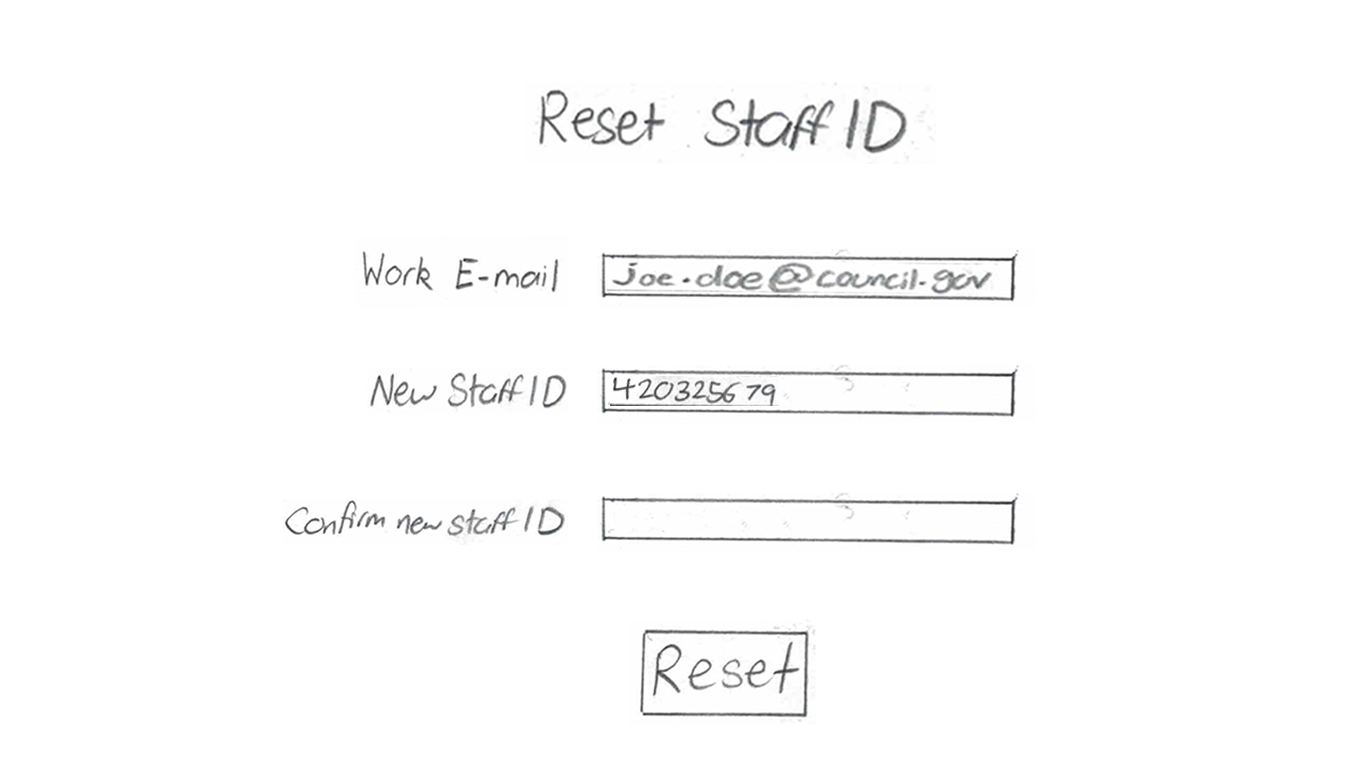 Reset Staff ID
Work E-mail joe.doe@council.gov
New Staff ID 420325679
Confirm new staff ID
Reset